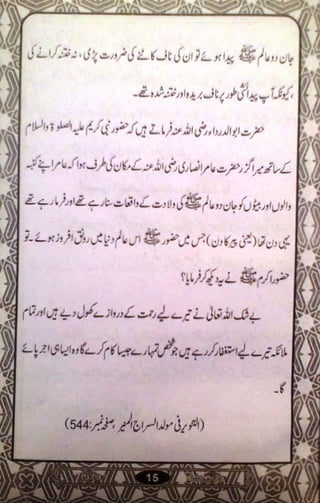 جان دو عالم ﷺ پیدا ہوئے تو ان کی ناف کاٹنے کی ضرورت پڑی، نہ ختنہ کرانے کی
، کیونکہ آپ پیدائشی طور پر ناف بریدہ اور ختنہ شدہ تھے۔
حضرت ابوالدرداء رضی اللہ عنہ فرماتے ہیں کہ حضور نبی کریم علیہ الصلوۃ والسلام
کے ساتھ میرا گزر حضرت عامر انصاری رضی اللہ عنہ کے مکان کی طرف ہوا کہ عامر اپنے کنبہ
والوں اور بیٹوں کو جان دو عالم ﷺ کی ولادت کے واقعات سنا رہے تھے اور فرما رہے تھے
یہی دن تھا (یعنی پیر کا دن) جس میں حضور ﷺ اس عالم دنیا میں رونق افروز ہوئے۔ تو
حضور اکرم ﷺ نے یہ دیکھ کر فرمایا؟
بے شک اللہ تعالیٰ نے تیرے لیے رحمت کے دروازے کھول دیے ہیں اور تمام
ملائکہ تیرے لیے استغفار کر رہے ہیں جو شخص تمہارے جیسا کام کرے گا وہ ایسا ہی اجر پائے
گا۔
(التنویر فی مولد السراج المنیر، صفحہ نمبر: 544)
15